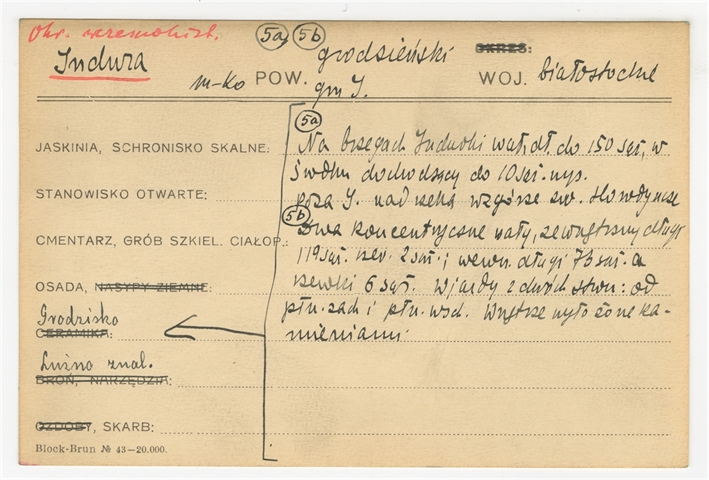 Okr. wczesnohist. 5a 5b
Indura m-ko POW. grodzieński OKRES:
gm I. WOJ. białostockie
5a
JASKINIA, SCHRONISKO SKALNE: Na brzegach Indurki wał, dł. do 150 sąż., w
środku dochodzący do 10 sąż. wys.
STANOWISKO OTWARTE: poza I. nad rzeką wzgórze zw.
5b Dwa koncentryczne wały, zewnętrzny długi
CMENTARZ, GRÓB SZKIEL. CIAŁOP.: 119 sąż. szer. 2 sąż. i wewn. długi 73 sąż. a
OSADA, NASYPY ZIEMNE: szeroki 6 sąż. Wjazdy z dwóch stron: od
Grodzisko płn. zach i płn. wsch. Wnętrze wyłożone ka-
CERAMIKA: mieniami.
Luźno znal.
BROŃ, NARZĘDZIA:
OZDOBY, SKARB:
Block-Brun № 43-20.000.